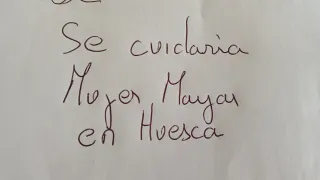 Se cuidaria
Mujer Mayor
en Huesca